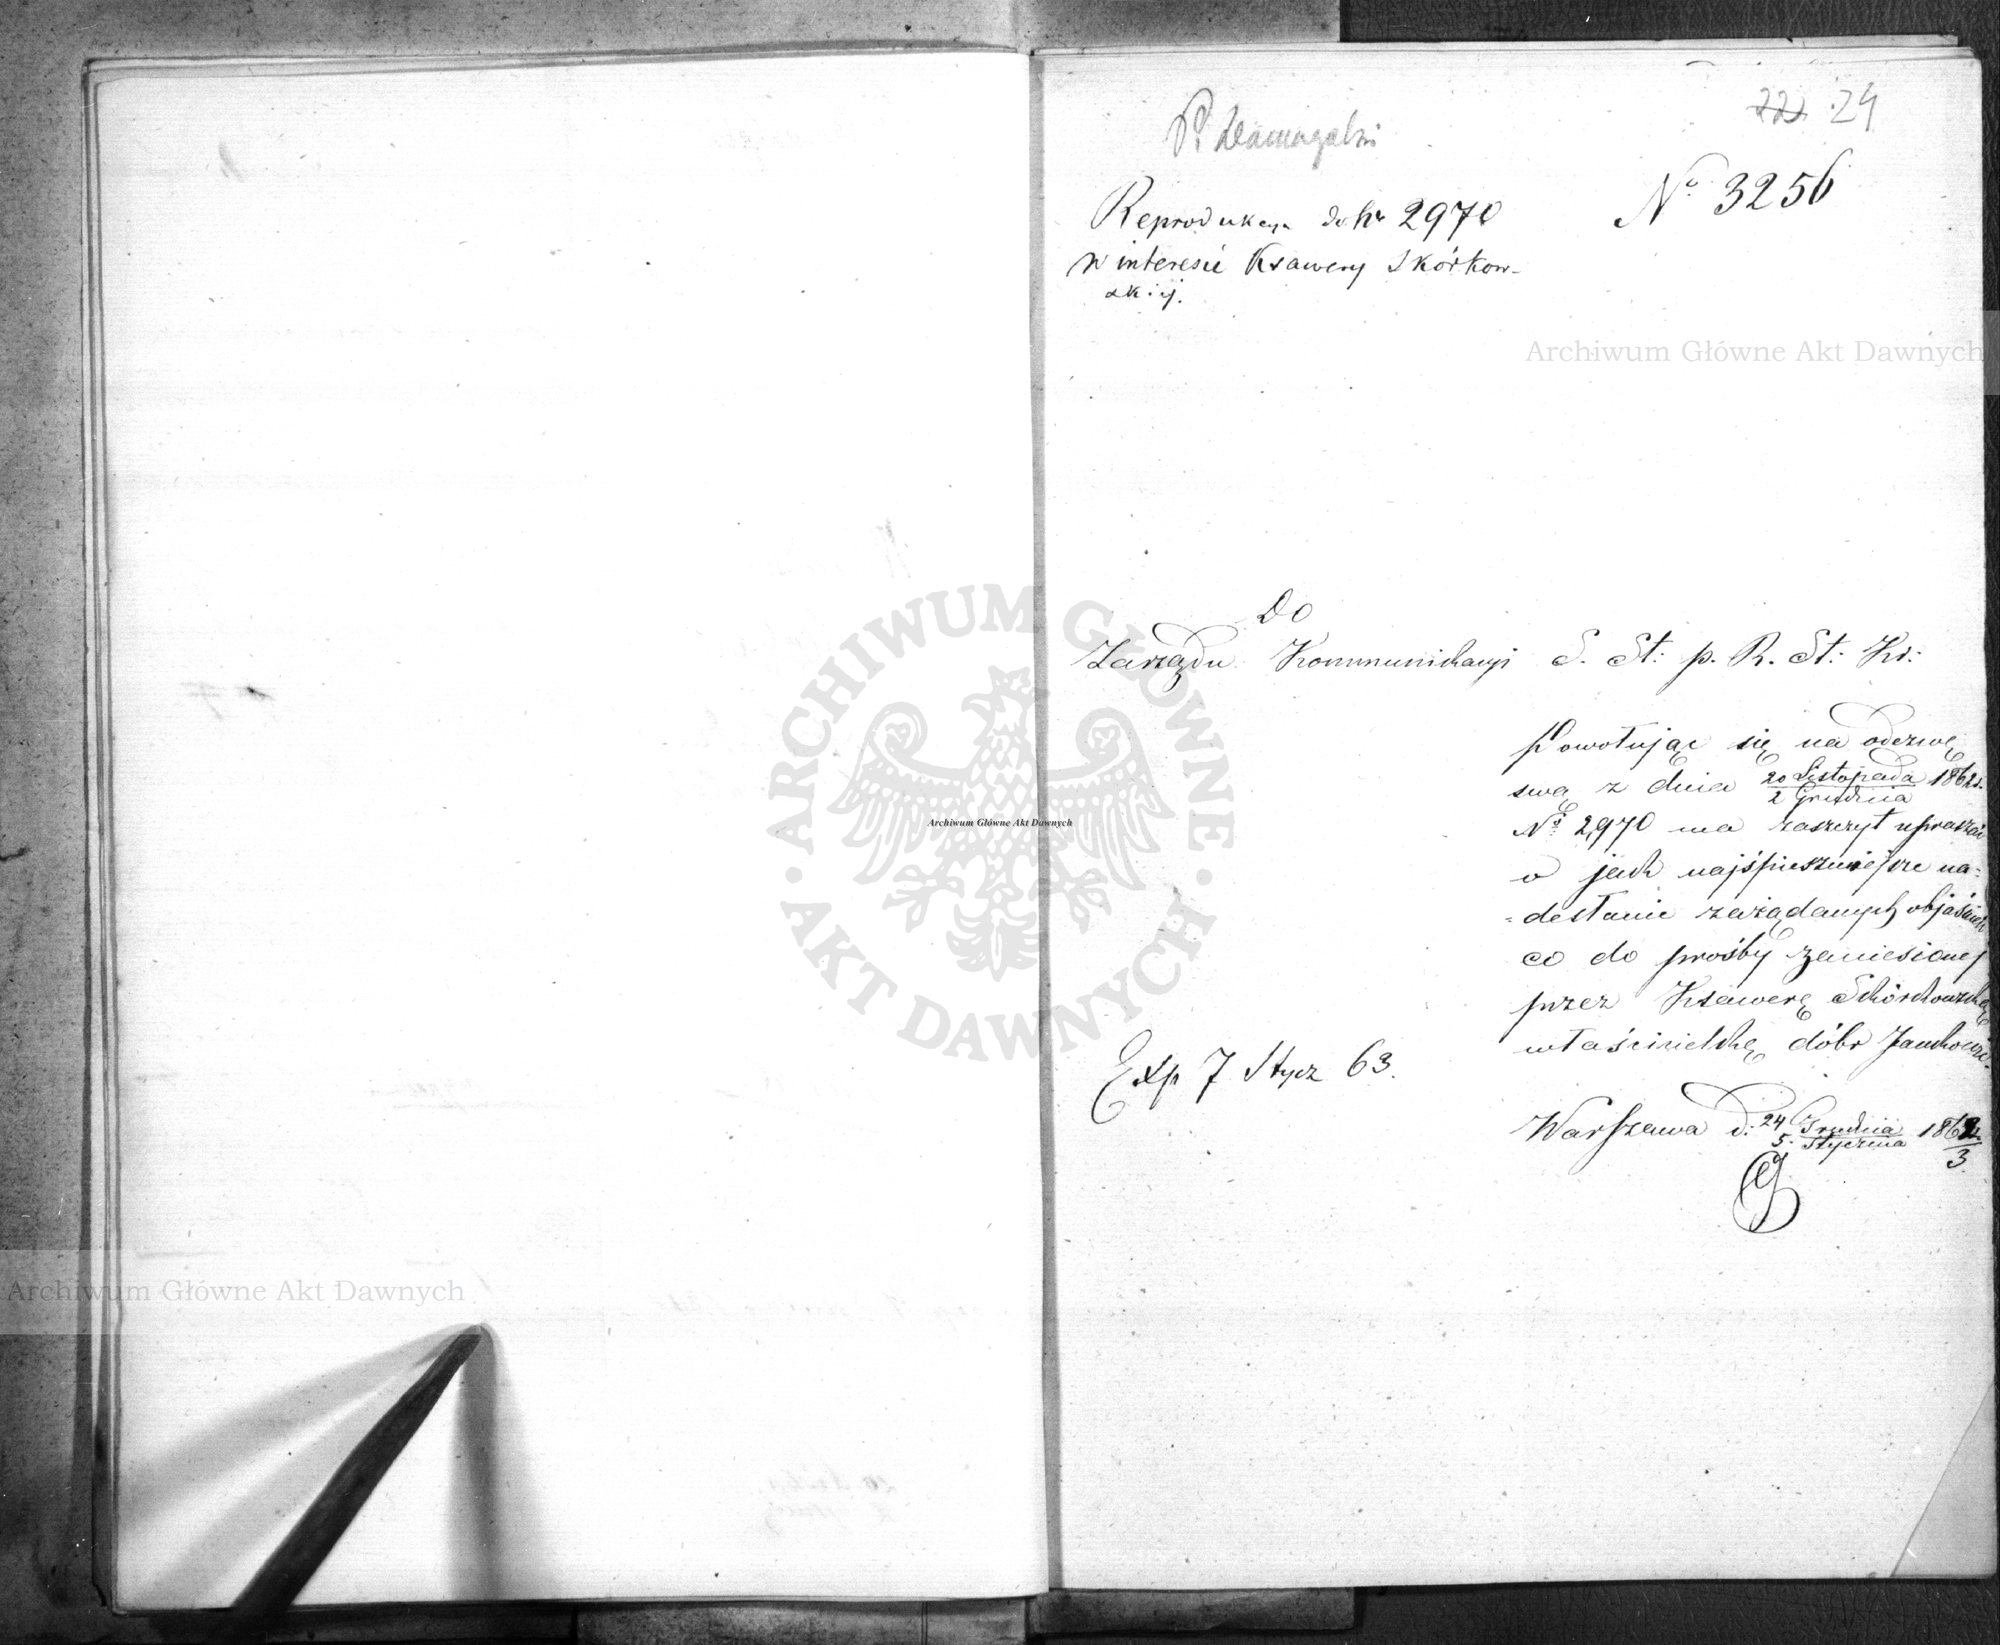 22. 24
P. Damagalski
Reprodukcya do Nr 2970
w interesie Ksawery Skórkow-
skiej.
No 3256
Archiwum Główne Akt Dawnych
Do
Zarządu Kommunikacyi S. St: p. R. St: Kr:
Powołując się na odezwę
swą z dnia 20 Listopada / 2 Grudnia 1862 r.
No 2970 ma zaszczyt upraszać
o jak najśpieszniejsze na-
-desłanie zażądanych objaśnień
co do prośby zaniesionej
przez Ksawerę Skórkowską
właścicielkę dóbr
Exp 7 Stycz 63.
Warszawa d: 24 Grudnia / 5 Stycznia 1862/3.
ARCHIWUM GŁÓWNE AKT DAWNYCH
Archiwum Główne Akt Dawnych
Archiwum Główne Akt Dawnych